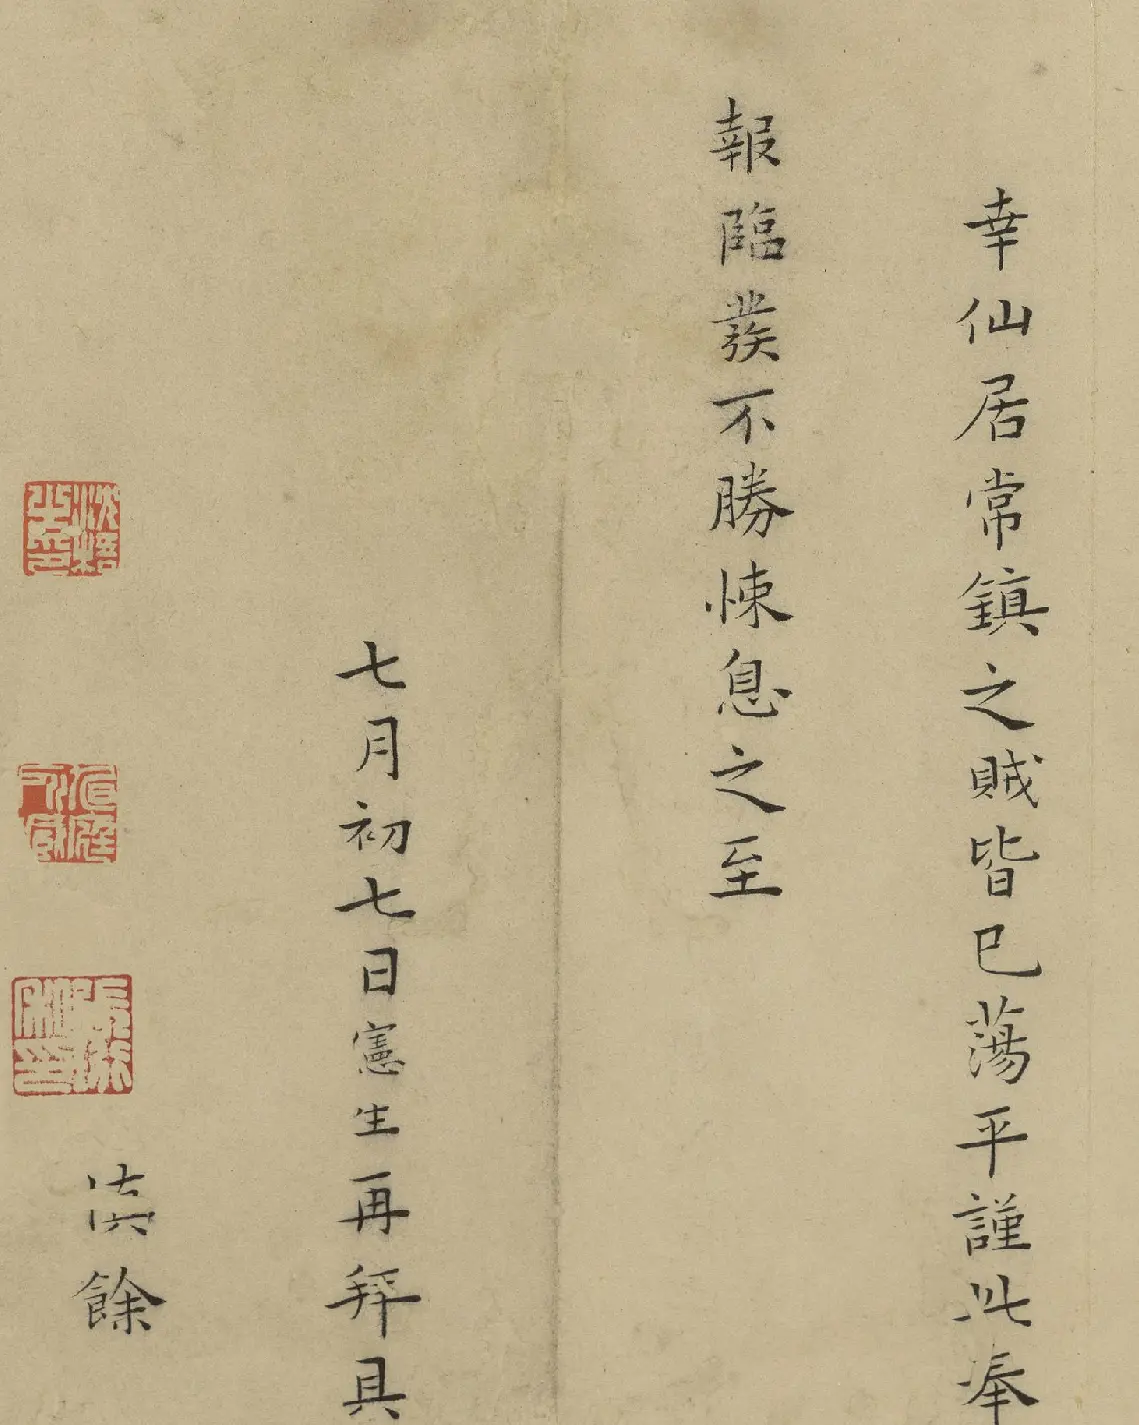 幸仙居常鎮之賊皆已蕩平謹此奉
報臨發不勝悚息之至
七月初七日憲生再拜具
慎餘
沈梧之印